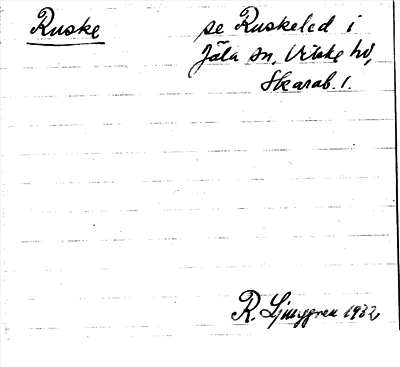 Ruske
se Ruskeled i
Jäla sn, Vilske hd,
Skarab. l.
R. Ljunggren 1932